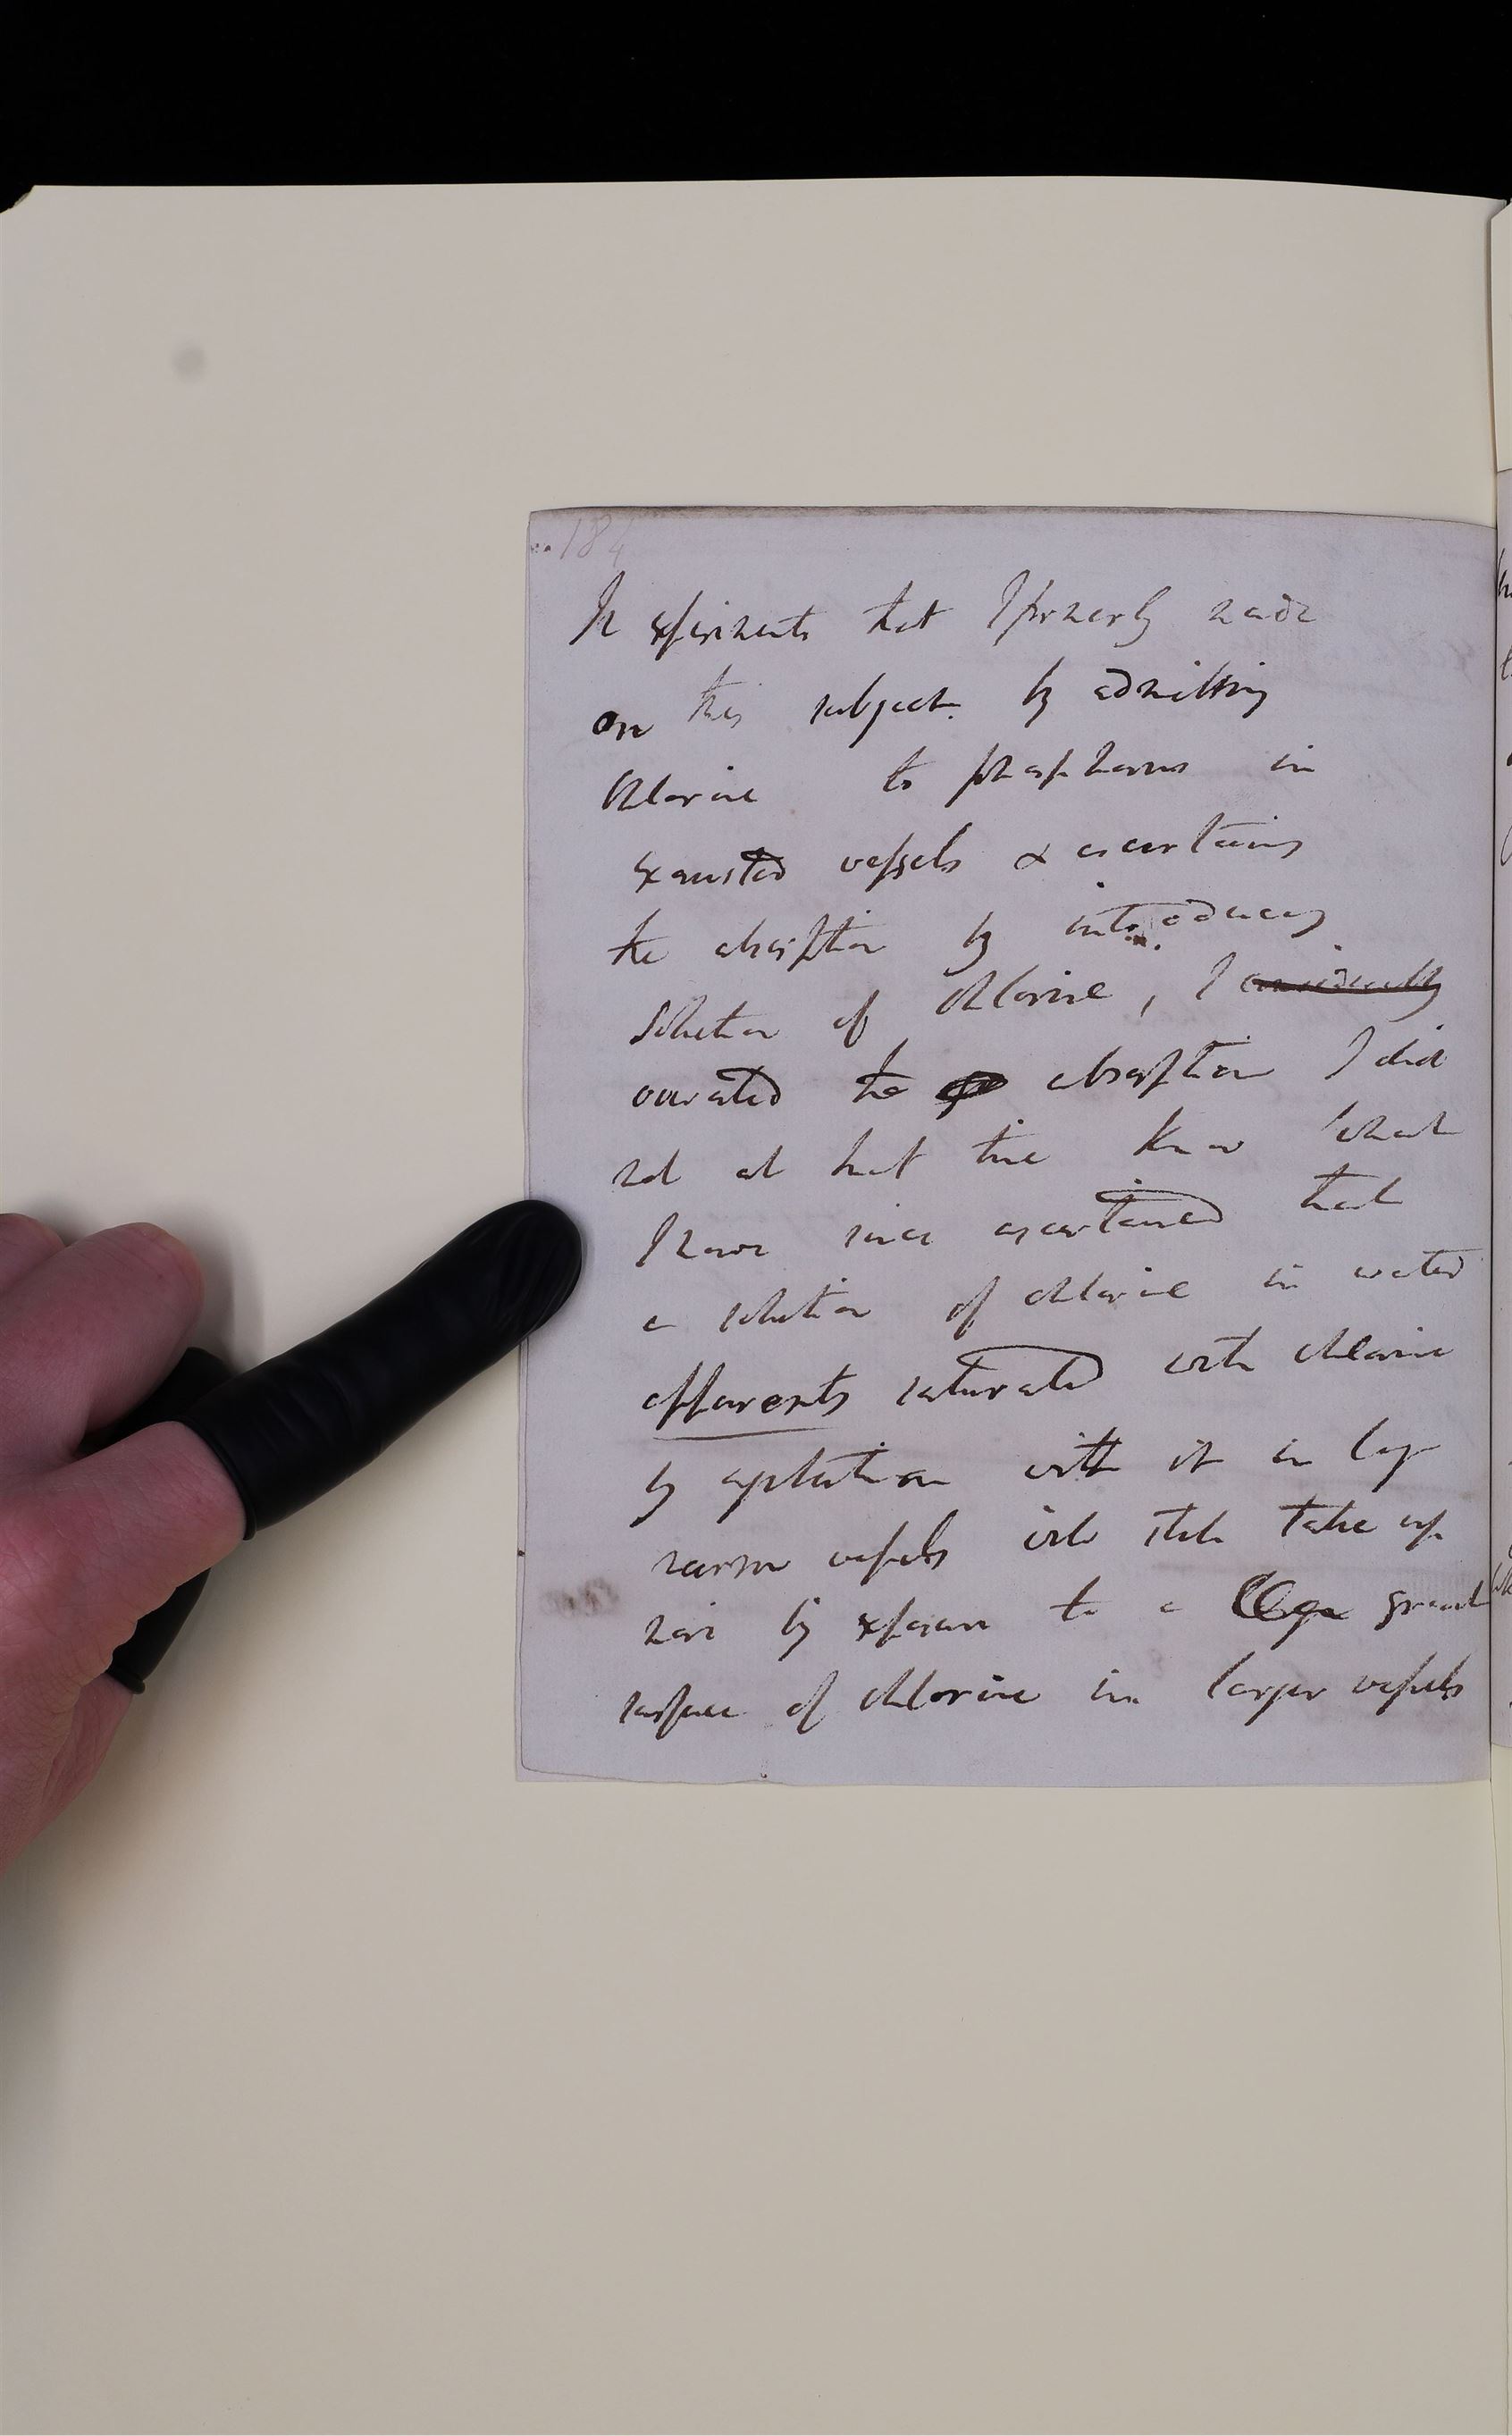 184
In experiments that I formerly made
on this subject by admitting
Chlorine to phosphorus in
exausted vessels & ascertaining
the absorption by introducing
solution of chlorine, I considerably
overrated the absorption I did
not at that time know what
I have since ascertained that
a solution of chlorine in water
apparently saturated with chlorine
by agitation with it in long
narrow vessels will still take up
more by exposure to a great
surface of chlorine in larger vessels